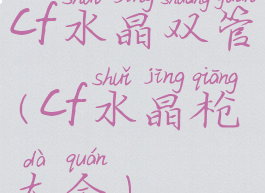 shuǐ jīng shuāng guǎn
cf水晶双管
shuǐ jīng qiāng
(cf水晶枪
dà quán
大全)